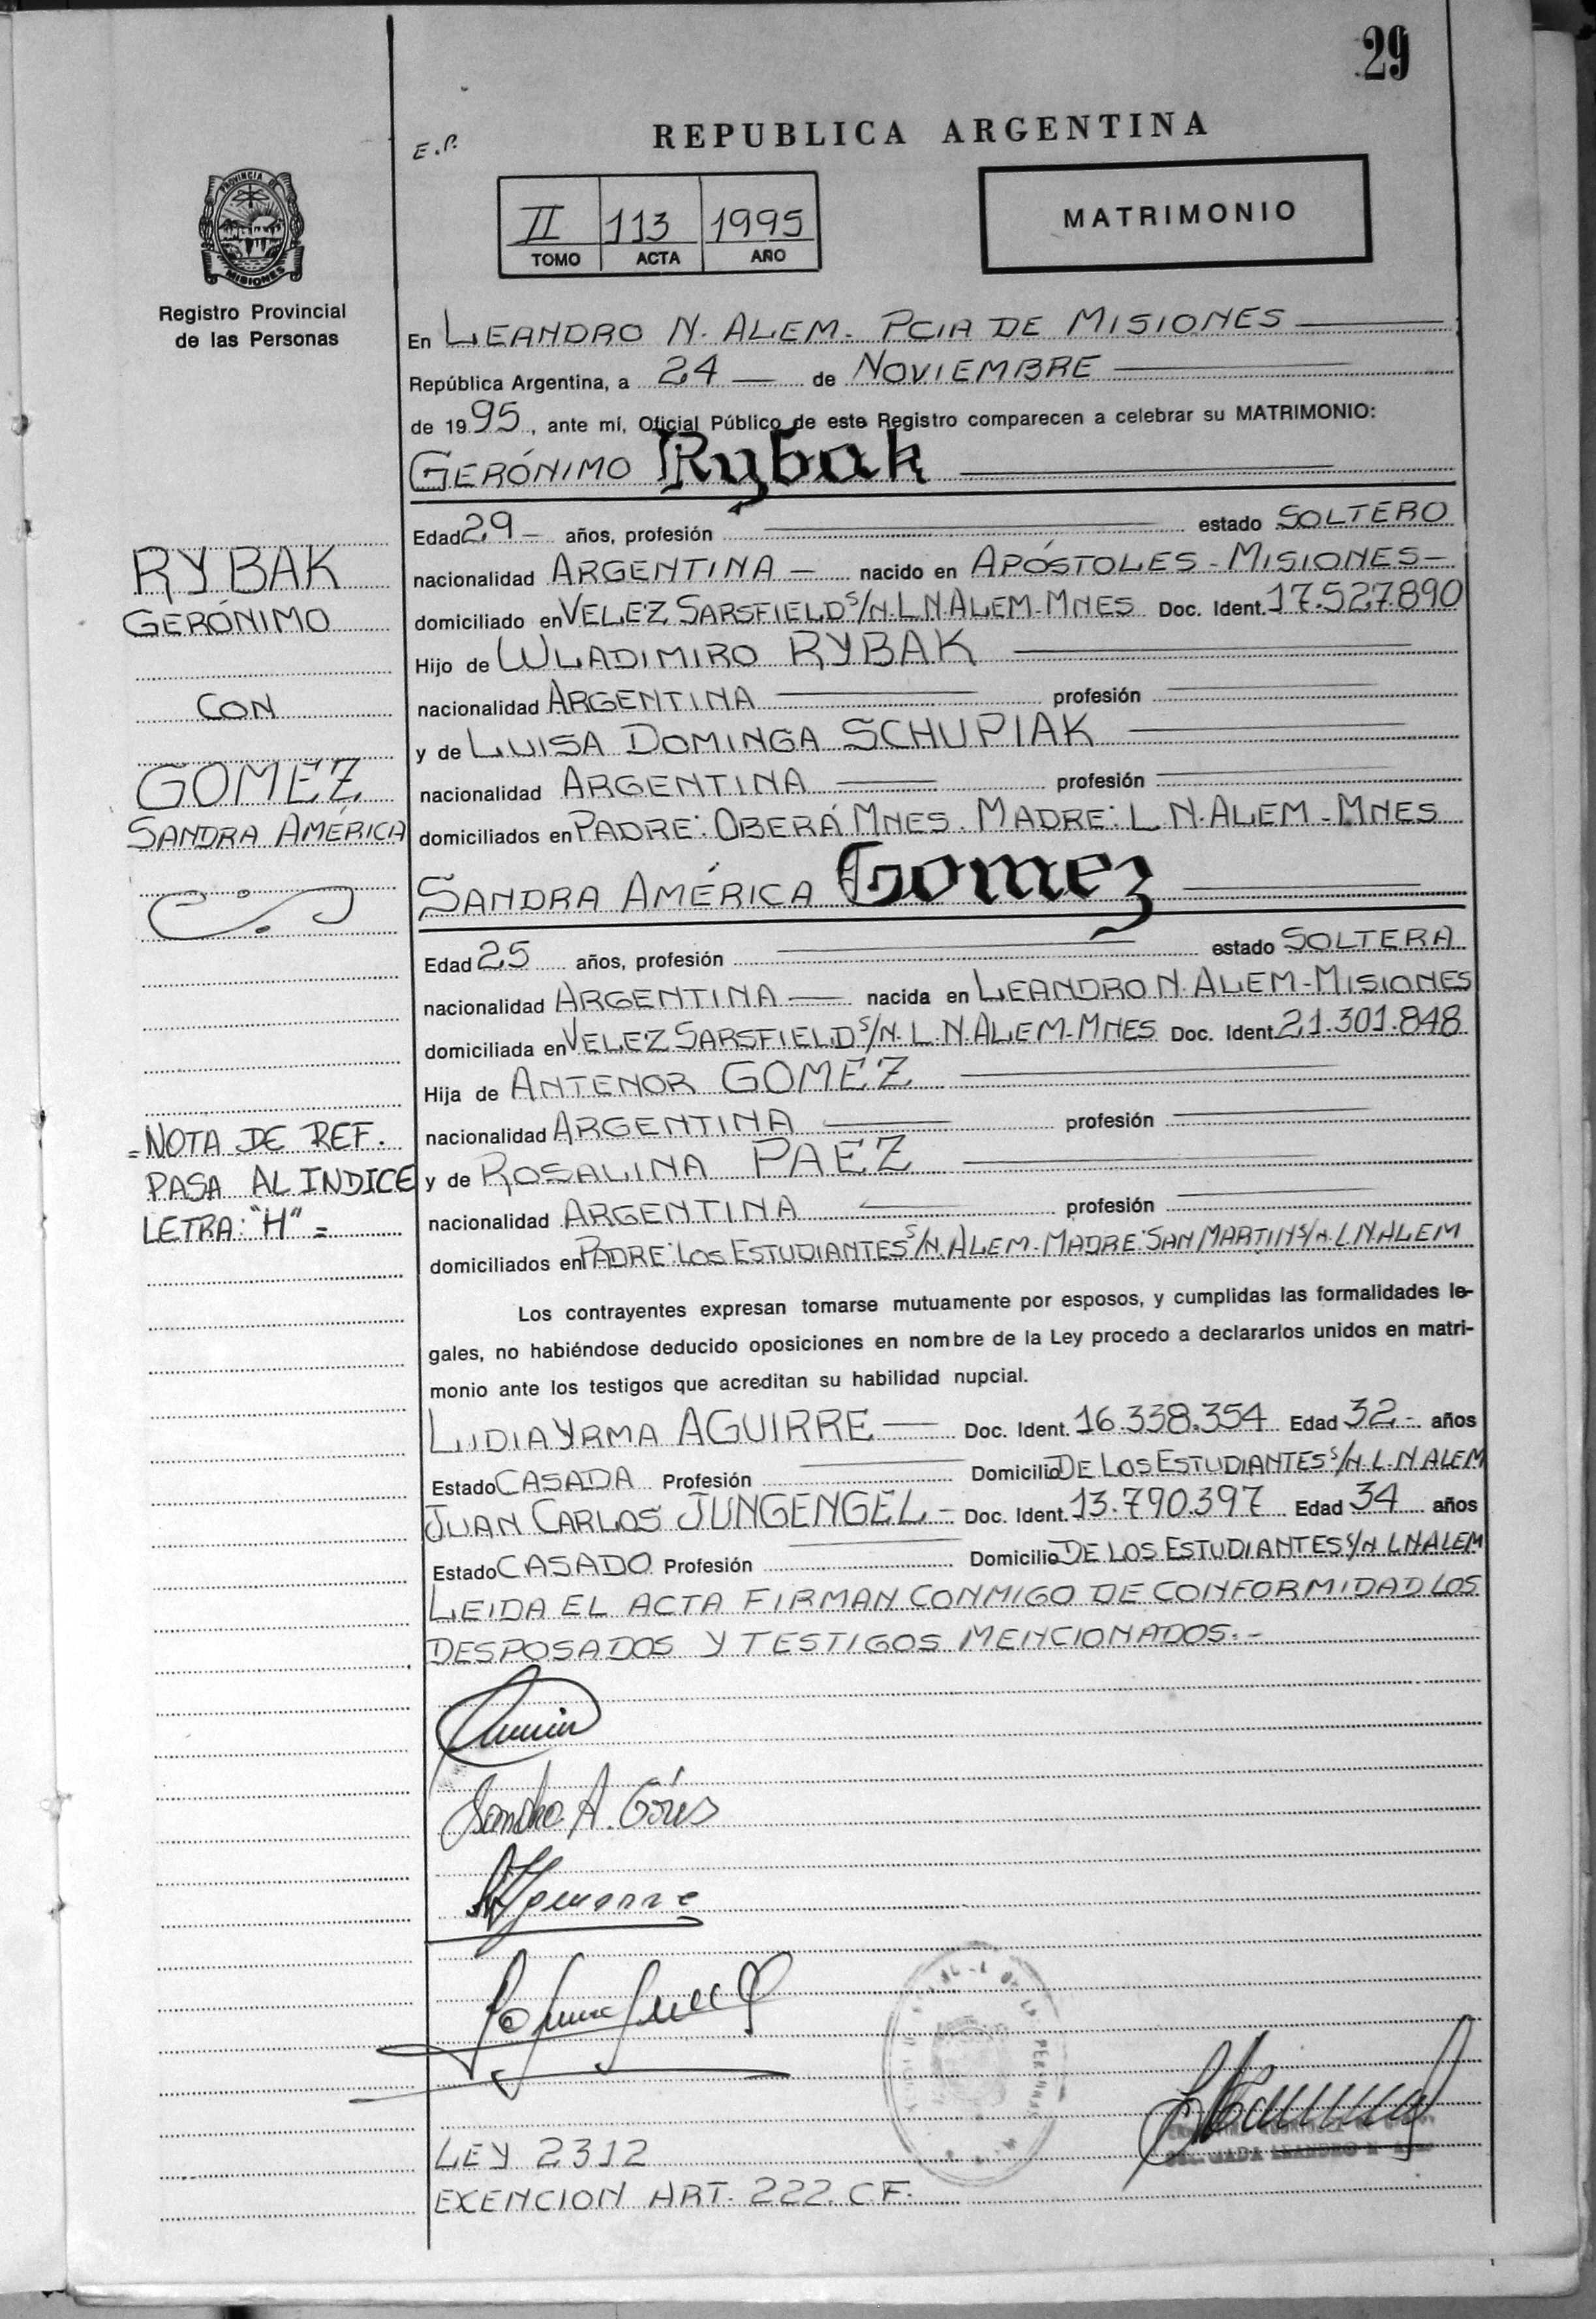 29
E.P.
REPUBLICA ARGENTINA
PROVINCIA DE
MISIONES
Registro Provincial
de las Personas
II 113 1995
TOMO ACTA AÑO
MATRIMONIO
En LEANDRO N. ALEM - PCIA DE MISIONES
República Argentina, a 24 de NOVIEMBRE
de 1995, ante mí, Oficial Público de este Registro comparecen a celebrar su MATRIMONIO:
GERÓNIMO Rybak
Edad 29 - años, profesión estado SOLTERO
nacionalidad ARGENTINA - nacido en APÓSTOLES - MISIONES -
domiciliado en VELEZ SARSFIELD S/N. L.N.ALEM-MNES Doc. Ident. 17.527.890
Hijo de WLADIMIRO RYBAK
nacionalidad ARGENTINA profesión
y de LUISA DOMINGA SCHUPIAK
nacionalidad ARGENTINA profesión
domiciliados en PADRE: OBERÁ MNES. MADRE: L.N.ALEM - MNES
RYBAK
GERÓNIMO
CON
GOMEZ
SANDRA AMÉRICA
SANDRA AMÉRICA Gomez
Edad 25 años, profesión estado SOLTERA
nacionalidad ARGENTINA - nacida en LEANDRO N. ALEM - MISIONES
domiciliada en VELEZ SARSFIELD S/N. L.N.ALEM-MNES Doc. Ident. 21.301.848
Hija de ANTENOR GOMEZ
nacionalidad ARGENTINA profesión
y de ROSALINA PAEZ
nacionalidad ARGENTINA profesión
domiciliados en PADRE: LOS ESTUDIANTES S/N. ALEM - MADRE: SAN MARTIN S/N. L.N.ALEM
=NOTA DE REF.
PASA AL INDICE
LETRA: "H" =
Los contrayentes expresan tomarse mutuamente por esposos, y cumplidas las formalidades le-
gales, no habiéndose deducido oposiciones en nombre de la Ley procedo a declararlos unidos en matri-
monio ante los testigos que acreditan su habilidad nupcial.
LIDIA YRMA AGUIRRE - Doc. Ident. 16.338.354 Edad 32.- años
Estado CASADA Profesión Domicilio DE LOS ESTUDIANTES S/N L.N ALEM
JUAN CARLOS JUNGENGEL - Doc. Ident. 13.790.397 Edad 34 años
Estado CASADO Profesión Domicilio DE LOS ESTUDIANTES S/N L.N.ALEM
LEIDA EL ACTA FIRMAN CONMIGO DE CONFORMIDAD LOS
DESPOSADOS Y TESTIGOS MENCIONADOS.-
Sandra A. Gómez
LEY 2312
EXENCION ART. 222. C.F.
LEANDRO N